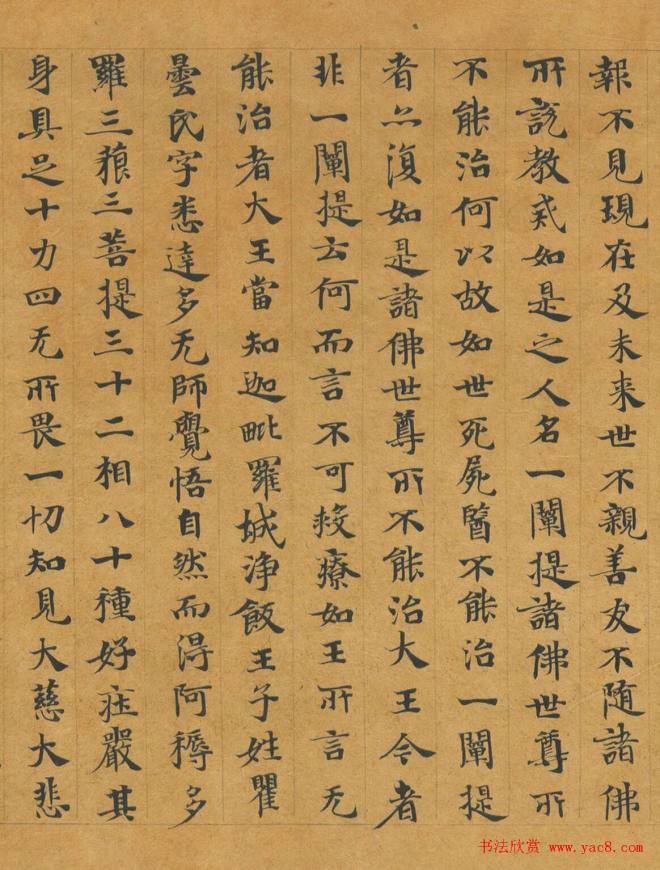 報不見現在及未来世不親善友不随諸佛
所說教戒如是之人名一闡提諸佛世尊所
不能治何以故如世死屍醫不能治一闡提
者亦復如是諸佛世尊所不能治大王今者
非一闡提云何而言不可救療如王所言无
能治者大王當知迦毗羅城淨飯王子姓瞿
曇氏字悉達多无師覺悟自然而得阿耨多
羅三藐三菩提三十二相八十種好莊嚴其
身具足十力四无所畏一切知見大慈大悲
书法欣赏 www.yac8.com